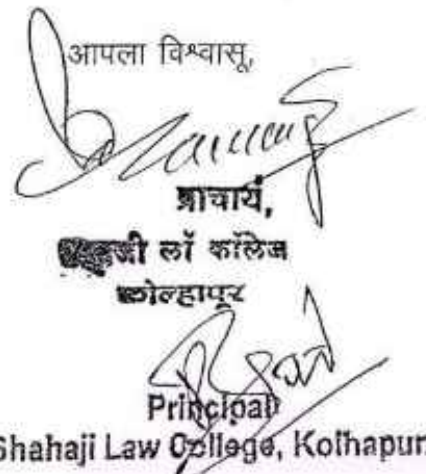 आपला विश्वासू,
प्राचार्य,
लॉ कॉलेज
कोल्हापूर
Principal
Shahaji Law College, Kolhapur